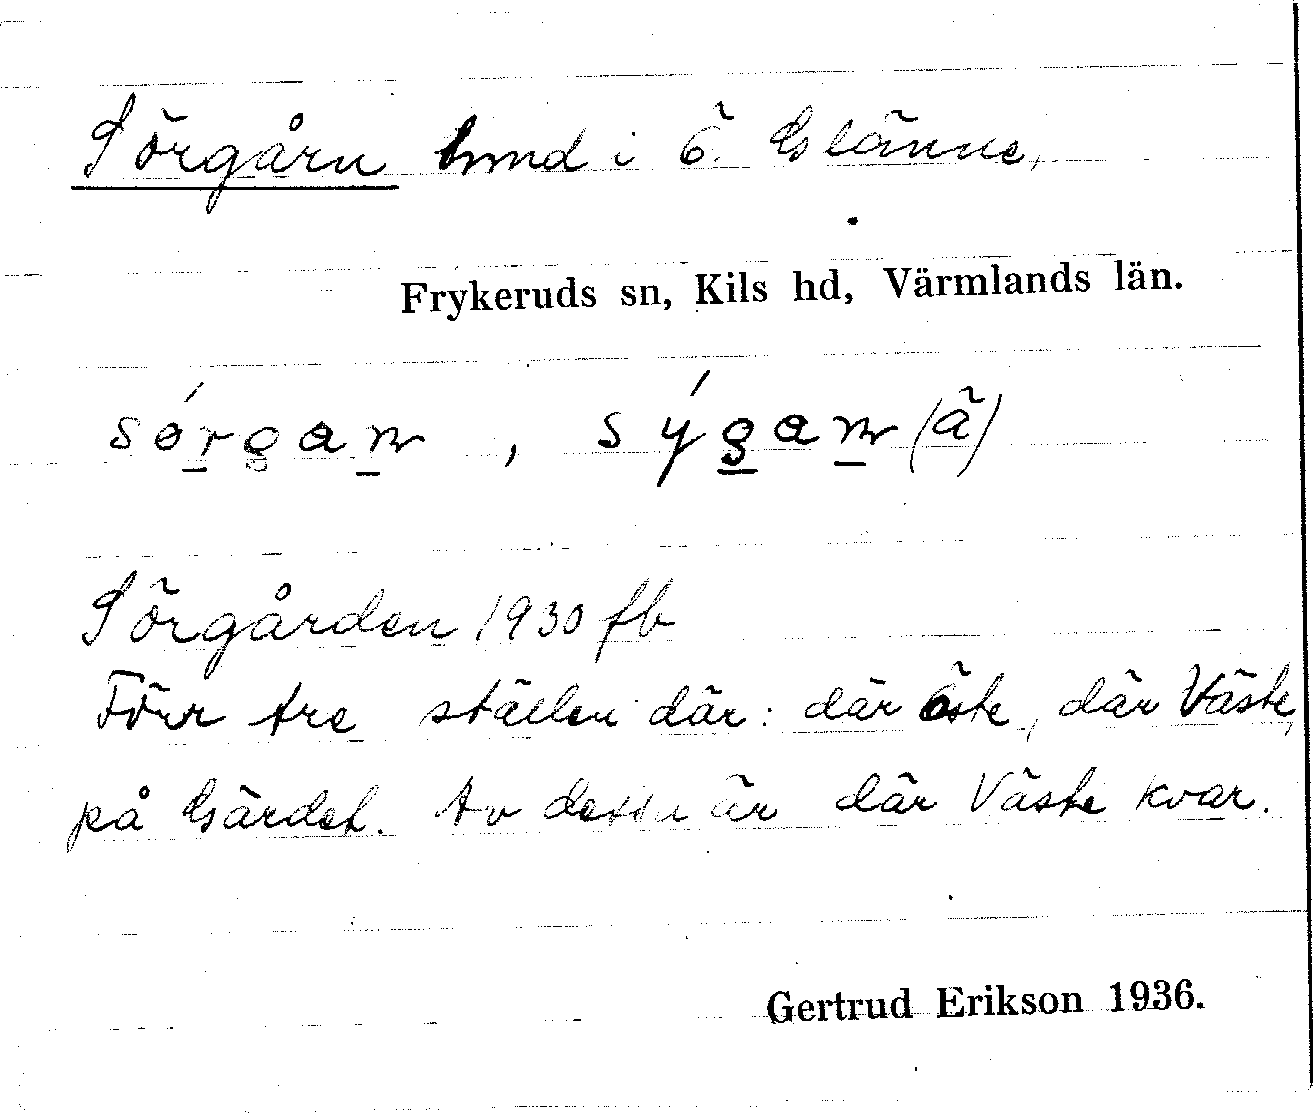 Sörgårn hmd i Ö. Glänne,
Frykeruds sn, Kils hd, Värmlands län.
sórgaɳ, sýgaɳ (ä)
Sörgården 1930 fb
Förr tre ställen där: där öste, där Väste,
på Gärdet. Av dessa är där Väste kvar.
Gertrud Erikson 1936.